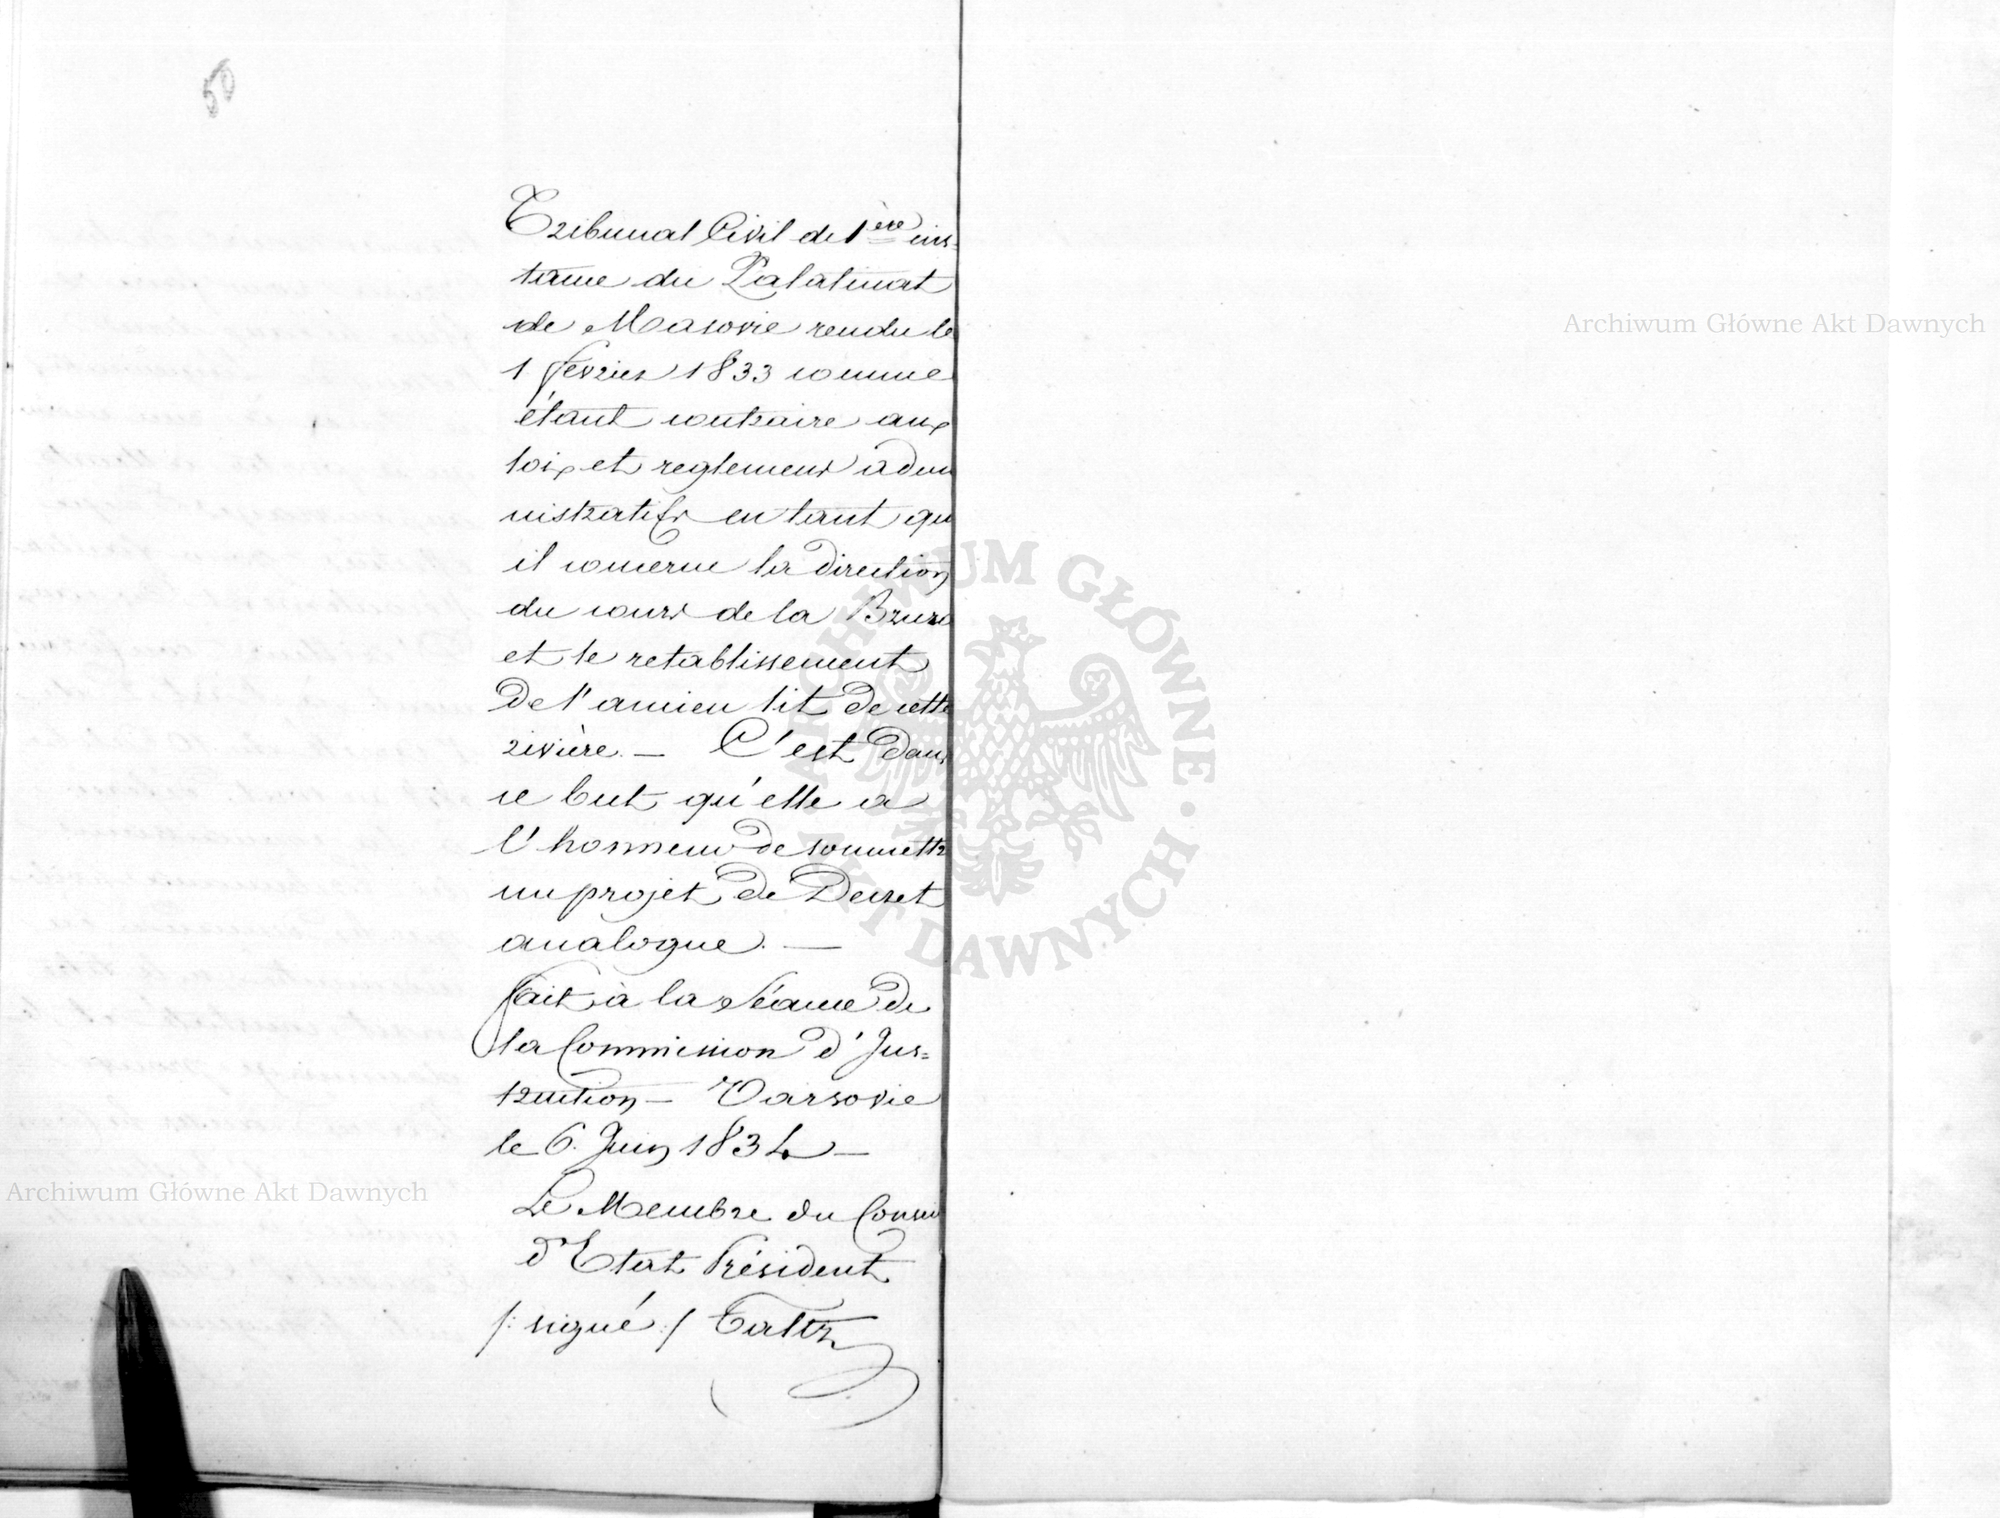 50
Tribunal Civil de 1ère ins=
tance du Palatinat
de Masovie rendu le
1 fevrier 1833 comme
étant contraire aux
loix et reglemens admi
nistratifs en tant qu
il concerne la direction
du cours de la Bzura
et le retablissement
de l'ancien lit de cette
rivière. — C'est dans
ce but qu'elle a
l'honneur de soumettre
un projet de Decret
analogue. —
fait à la Séance de
la Commission d'Jus=
truction — Varsovie
le 6. Juin 1834 —
Le Membre du Conseil
d'Etat Président
/: signé :/
Archiwum Główne Akt Dawnych
Archiwum Główne Akt Dawnych
ARCHIWUM GŁÓWNE · AKT DAWNYCH ·